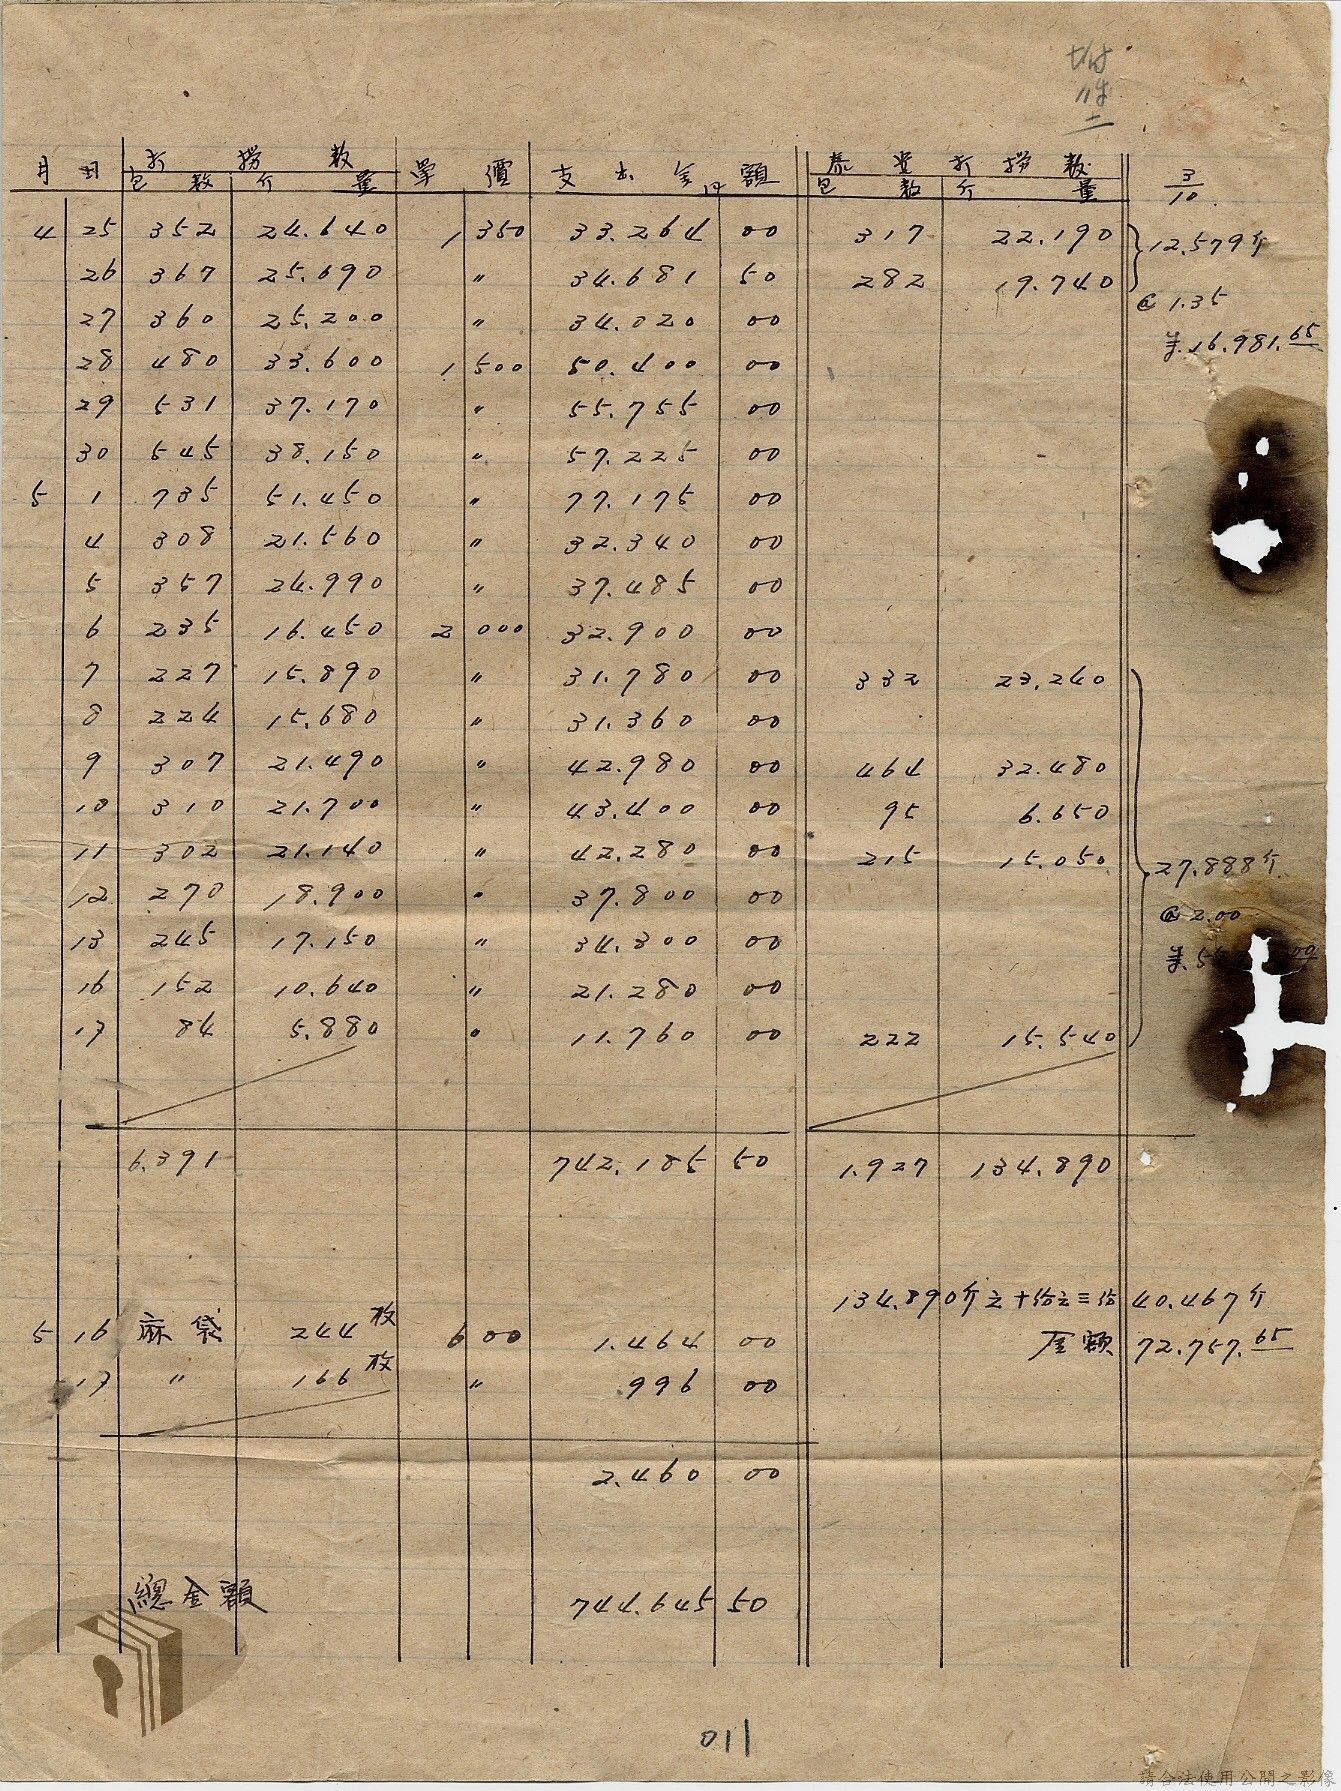 附件二
月 日 打撈數 單價 支出金額 泰豐打撈數 3/10
包數 斤量 包數 斤量
4 25 352 24.640 1 350 33.264 00 317 22.190 12.579斤
26 367 25.690 〃 34.681 50 282 19.740
@ 1.35
27 360 25.200 〃 34.020 00
28 480 33.600 1 500 50.400 00 16.981.65
29 531 37.170 〃 55.755 00
30 545 38.150 〃 57.225 00
5 1 735 51.450 〃 77.175 00
4 308 21.560 〃 32.340 00
5 357 24.990 〃 37.485 00
6 235 16.450 2 000 32.900 00
7 227 15.890 〃 31.780 00 332 23.240
8 224 15.680 〃 31.360 00
9 307 21.490 〃 42.980 00 464 32.480
10 310 21.700 〃 43.400 00 95 6.650
11 302 21.140 〃 42.280 00 215 15.050 27.888斤
12 270 18.900 〃 37.800 00
@ 2.00
13 245 17.150 〃 34.300 00
16 152 10.640 〃 21.280 00
17 84 5.880 〃 11.760 00 222 15.540
6.391 742.185 50 1.927 134.890
134.890斤之十份之三份 40.467斤
5 16 麻袋 244枚 600 1.464 00 金額 72.757.65
17 〃 166枚 〃 996 00
2.460 00
總金額 744.645 50
011
請合法使用公開之影像